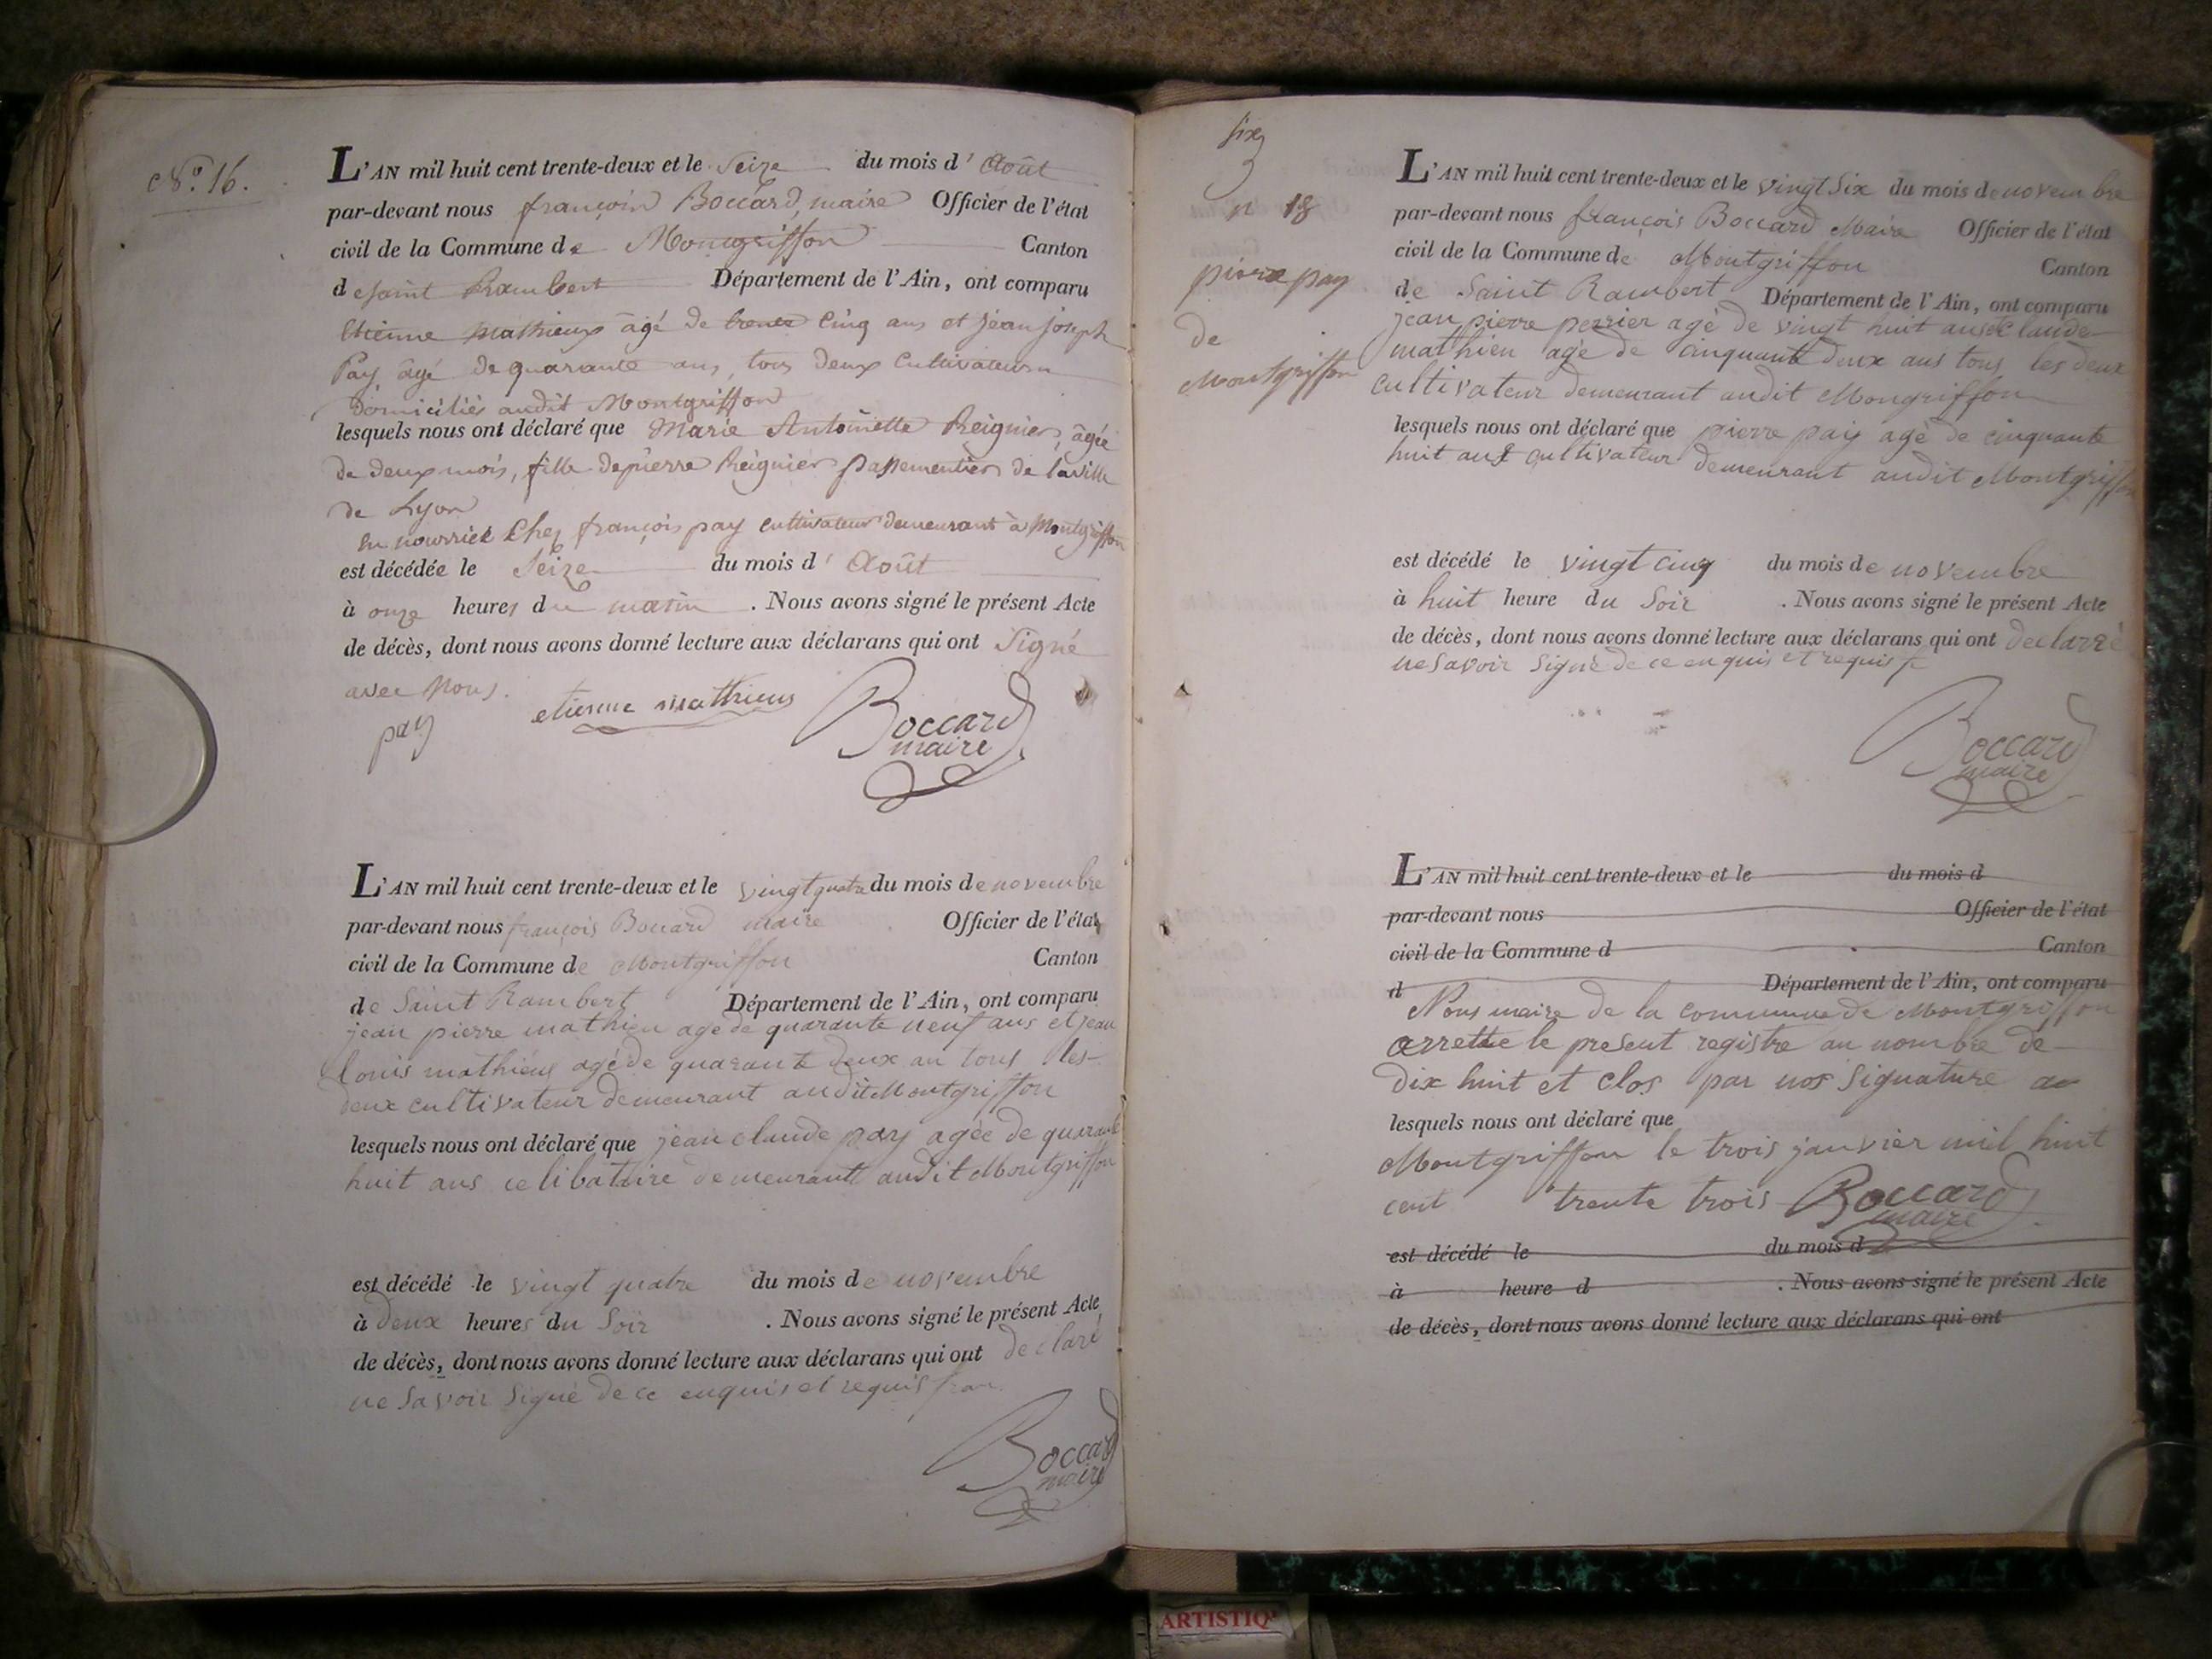 N.° 16.
L'AN mil huit cent trente-deux et le Seize du mois d' Août
par-devant nous françois Boccard, maire Officier de l'état
civil de la Commune de Montgriffon Canton
de saint Rambert Département de l'Ain, ont comparu
Etienne Mathieux âgé de trente Cinq ans et jean joseph
Pay, âgé de quarante ans, tous deux Cultivateurs
Domiciliés audit Montgriffon
lesquels nous ont déclaré que Marie Antoinette Reignier, âgée
de deux mois, fille de pierre Reignier passementier de la ville
de Lyon
en nourrice chez françois pay cultivateur demeurant à Montgriffon
est décédée le Seize du mois d' Août
à onze heures du matin . Nous avons signé le présent Acte
de décès, dont nous avons donné lecture aux déclarans qui ont Signé
avec Nous.
pay etienne mathieux Boccard
maire
L'AN mil huit cent trente-deux et le vingt quatre du mois de novembre
par-devant nous françois Boccard maire Officier de l'état
civil de la Commune de Montgriffon Canton
de Saint Rambert Département de l'Ain, ont comparu
jean pierre mathieu age de quarante neuf ans et jean
louis mathieux agé de quarante deux an tous les
deux cultivateur demeurant audit Montgriffon
lesquels nous ont déclaré que jean claude pay agée de quarante
huit ans celibattire demeurant audit Montgriffon
est décédé le vingt quatre du mois de novembre
à deux heures du Soir . Nous avons signé le présent Acte
de décès, dont nous avons donné lecture aux déclarans qui ont declaré
ne Savoir Signé de ce enquis et requis
Boccard
maire
six
n 18
pierre pay
de
Montgriffon
L'AN mil huit cent trente-deux et le vingt Six du mois de novembre
par-devant nous françois Boccard Maire Officier de l'état
civil de la Commune de Montgriffon Canton
de Saint Rambert Département de l'Ain, ont comparu
jean pierre perrier agé de vingt huit ans et claude
mathieu agé de cinquante deux ans tous les deux
cultivateur demeurant audit Mongriffon
lesquels nous ont déclaré que pierre pay agé de cinquante
huit ans cultivateur demeurant audit Montgriffon
est décédé le vingt cinq du mois de novembre
à huit heure du Soir . Nous avons signé le présent Acte
de décès, dont nous avons donné lecture aux déclarans qui ont declarré
ne Savoir Signé de ce enquis et requis
Boccard
maire
L'AN mil huit cent trente-deux et le du mois d
par-devant nous Officier de l'état
civil de la Commune d Canton
d Département de l'Ain, ont comparu
Nous maire de la commune de Montgriffon
arrette le present registre au nombre de
dix huit et clos par nos Signature au
lesquels nous ont déclaré que
Montgriffon le trois janvier mil huit
cent trente trois Boccard
maire
est décédé le du mois d
à heure d . Nous avons signé le présent Acte
de décès, dont nous avons donné lecture aux déclarans qui ont
ARTISTIQ